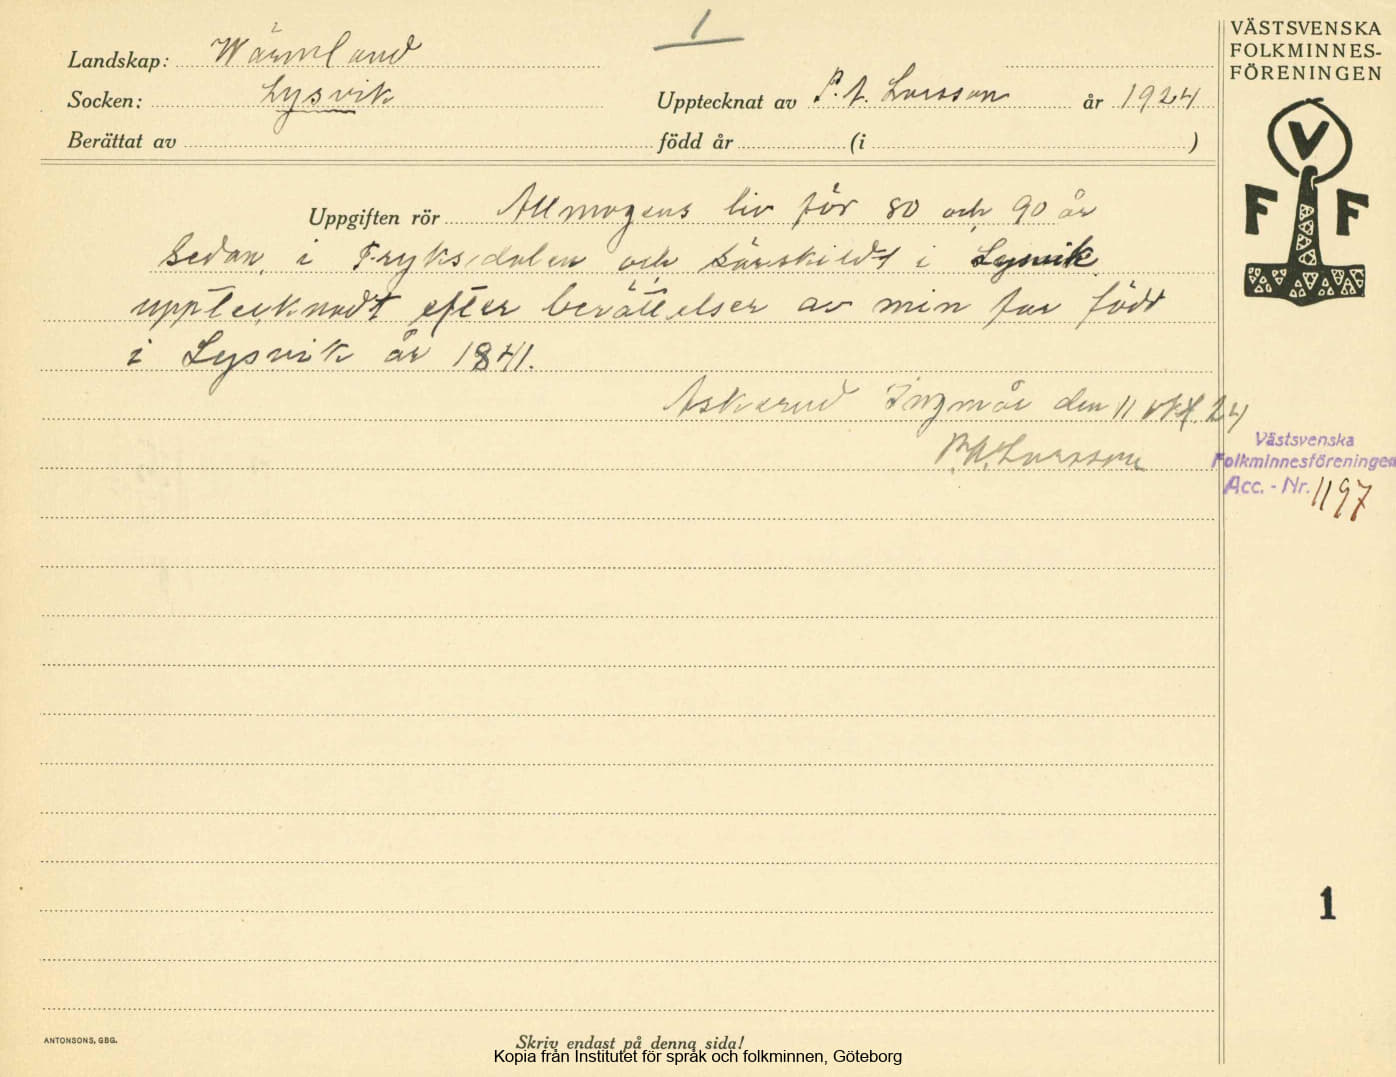 1
VÄSTSVENSKA
FOLKMINNES-
FÖRENINGEN
V
F F
Landskap: Wärmland
Socken: Lysvik Upptecknat av P. A. Larsson år 1924
Berättat av född år (i )
Uppgiften rör Allmogens liv för 80 och 90 år
Sedan, i Fryksdalen och särskildt i Lysvik
upptecknadt efter berättelser av min far född
i Lysvik år 1841.
Askerud Ingmår den 11 okt. 24
P. A. Larsson
Västsvenska
Folkminnesföreningen
Acc. - Nr. 1197
1
ANTONSONS, GBG.
Skriv endast på denna sida!
Kopia från Institutet för språk och folkminnen, Göteborg